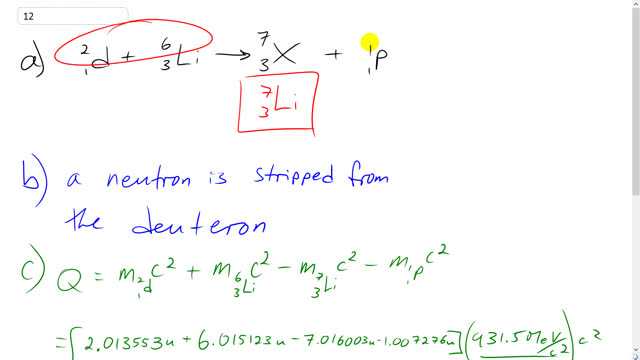 12
a) ²₁d + ⁶₃Li → ⁷₃X + ¹₁p
⁷₃Li
b) a neutron is stripped from
the deuteron
c) Q = m²₁d c² + m⁶₃Li c² - m⁷₃Li c² - m¹₁p c²
= [2.013553u + 6.015123u - 7.016003u - 1.007276u] (931.5 MeV/c²) c²